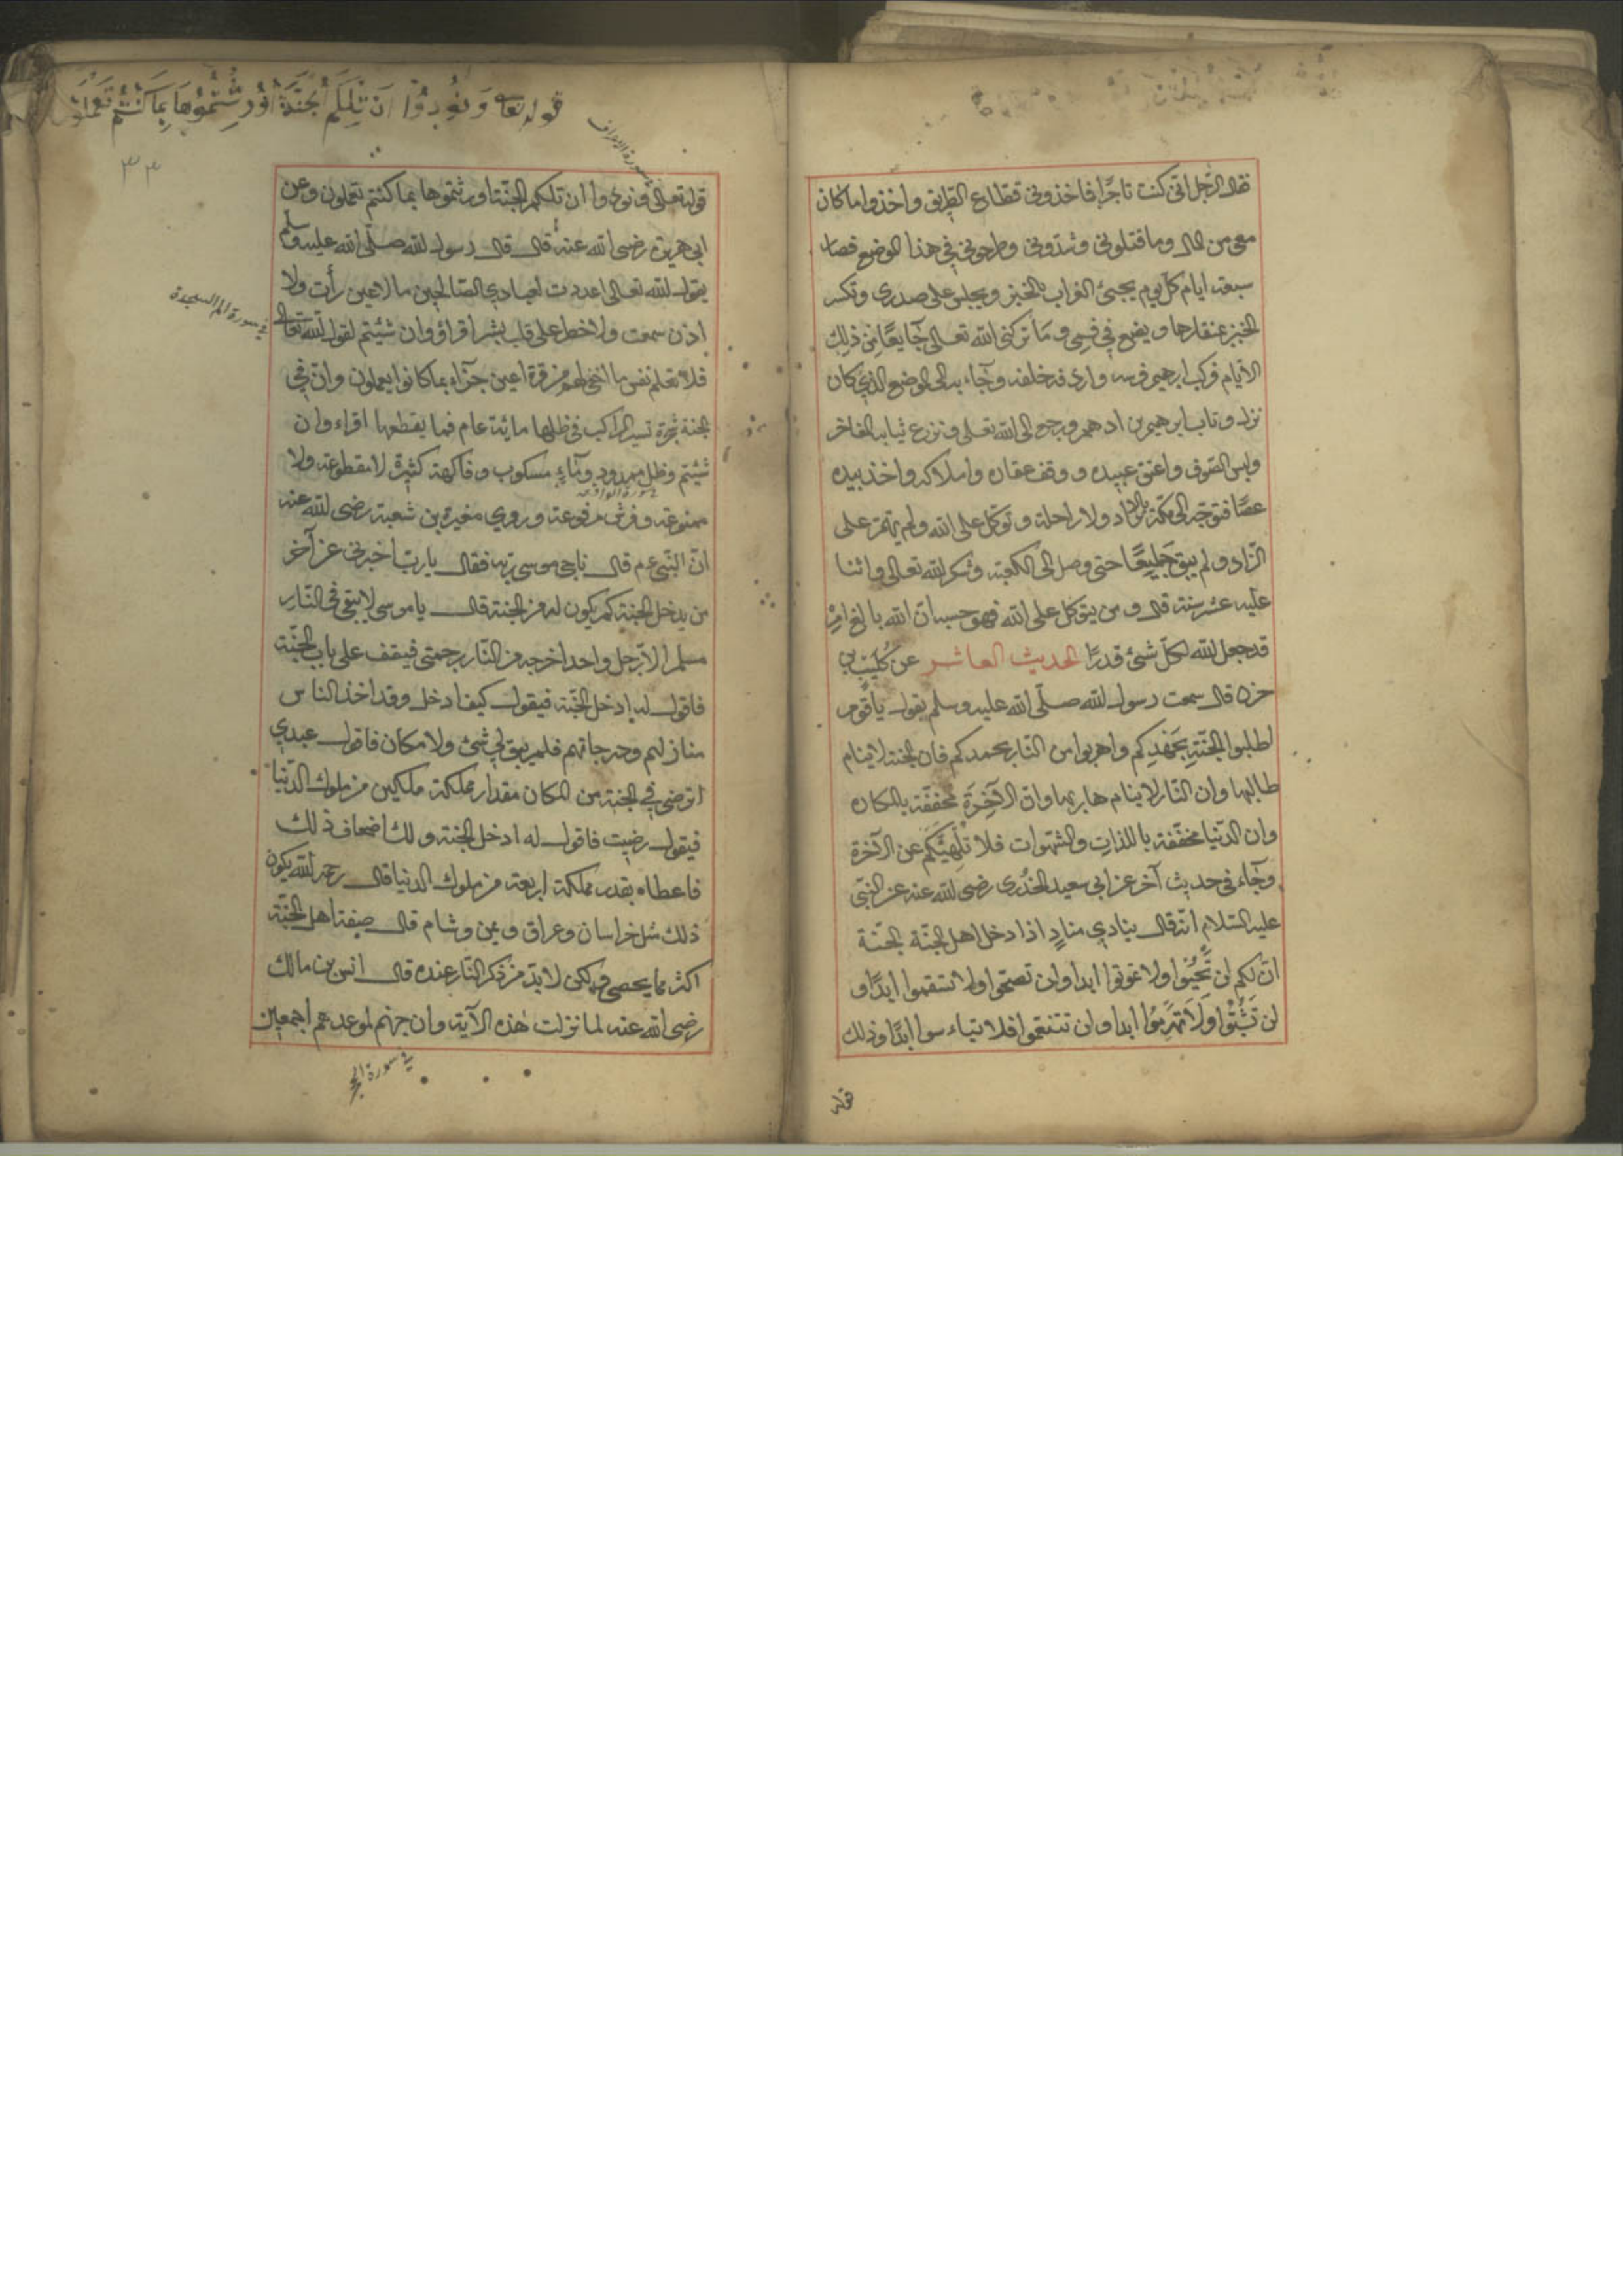 فقال الرّجل انّى كنت تاجرًا فاخذونى قطّاع الطّريق واخذوا ما كان
معى من المال وما قتلونى وشدّونى وطرحونى فى هذا الموضع فصار
سبعة ايام كلّ يوم يجيئ الغراب بالخبز ويجلس على صدرى وتكسر
الخبز بمنقارها ويضع فى فمى وما تركنى الله تعالى جَايعًا من ذلك
الايّام فركب ابرهيم فرسه واردفه خلفه وجاء به الى الموضع الذى كان
نزله وتاب ابرهيم بن ادهم ورجع الى الله تعلى ونزع ثيابه الفاخر
ولبس الصّوف واعتق عبيده ووقف عقاره واملاكه واخذ بيده
عصًا فتوجّه الى مكّة بلا زاد ولا راحلة وتوكل على الله ولم يهتمّ على
الزّاد ولم يبق جَايِعًا حتى وصل الى الكعبة وشكر لله تعالى واثنا
عليه عشر سنة قال ومن يتوكل على الله فهو حسبه انّ الله بالغ امْرِ
قد جعل الله لكلّ شئ قدرًا الحديث العاشر عن كُلَيْبِ بن
حزن قال سمعت رسول الله صلّى الله عليه وسلم يقول يا قوم
اطلبوا الجنّةِ بِجَهْدِكم واهربوا من النّار بجهدكم فان الجنة لا ينام
طالبها وان النّار لا ينام هاربها وانّ الآخِرَة محففّة بالمكاره
وان الدّنيا محفّفة باللذاتِ والشهوات فلا تُلْهِيَنَّكم عن الآخرة
وجَاء فى حديث آخر عن ابى سعيد الخُدْرى رضى الله عنه عن النبّى
عليه السّلام انّه قال ينادى منادٍ اذا دخل اهل الجنّة الجنّة
انّ لكم ان تُحْيَوْا ولا تموتوا ابدا وان تصحّوا ولا تسقموا ابدًا و
لن تَشِبُّوْا ولَا تَهْرَمُوا ابدا وان تتنعّموا فلا تبأسوا ابدًا وذلك
قوله
قوله تعا وَنُودُوْا اَنْ تِلْكُمُ الجَنَّةُ اُوْرِثْتُمُوْهَا بِمَا كُنْتُمْ تَعْمَلُوْنَ
سورة الاعراف
٣٣
قوله تعالى ونودوا ان تلكم الجنّة اورثتموها بما كنتم تعملون وعن
ابى هريرة رضى الله عنه قال قال رسول الله صلّى الله عليه وسلم
يقول الله تعالى اعددت لعبادي الصّالحين ما لا عين رأت ولا
اذن سمعت ولا خطر على قلب بشر اقراؤ وان شئتم لقول الله تعا
فى سورة الم السجدة
فلا تعلم نفس ما اخفى لهم من قرة اعين جزاء بما كانوا يعملون وانّ فى
الجنة شجرة تسير الراكب فى ظلها مائة عام فما يقطعها اقراء وان
شئتم وظل ممدود وماءٍ مسكوب وفاكهة كثيرة لا مقطوعة ولا
فى سورة الواقعه
ممنوعة وفرش مرفوعة وروي مغيرة بن شعبة رضى الله عنه
انّ النّبى عم قال ناجى موسى ربّه فقال يا ربّ اخبرنى عن آخر
من يدخل الجنة كم يكون له من الجنة قال يا موسى لا يبقى فى النّار
مسلم الاّ رجل واحد اخرجه من النّار برحمتى فيقف على باب الجنّة
فاقول له ادخل الجنّة فيقول كيف ادخل وقد اخذ الناس
منازلهم ودرجاتهم فلم يبق لى شئ ولا مكان فاقول عبدي
اترضى فى الجنة من المكان مقدار مملكة ملكين من ملوك الدّنيا
فيقول رضيت فاقول له ادخل الجنة ولك اضعاف ذلك
فاعطاه بقدر مملكة اربعة من ملوك الدنيا قال رحمه الله يكون
ذلك مثل خراسان وعراق ويمن وشام قال صفة اهل الجنّة
اكثر مما يحصى ولكن لا بدّ من ذكر النّار عنده قال انس بن مالك
رضى الله عنه لما نزلت هذه الآية وان جهنم لموعدهم اجمعين
فى سورة الحجر